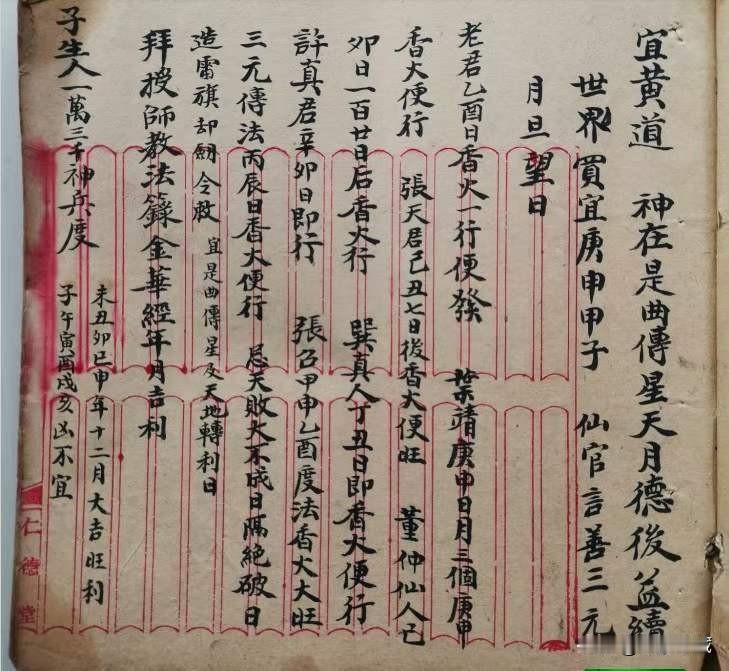 宜黄道 神在是曲傳星天月德後益續
世界買宜庚申甲子 仙官言善三元
月旦望日
老君乙酉日香火一行便發 葉靖庚申日月三個庚申
香大便行 張天君己丑七日後香大便旺 董仲仙人己
卯日一百廿日后香火行 巽真人丁丑日即香大便行
許真君辛卯日即行 張召甲申乙酉度法香火大旺
三元傳法丙辰日香大便行 忌天敗大不成日隔絶破日
造雷旗却劒令敕 宜是曲傳星及天地轉利日
拜授師教法籙金華經年月吉利
未丑卯巳申年十二月大吉旺利
子生人一萬三千神兵度
子午寅酉戌亥凶不宜
仁德堂